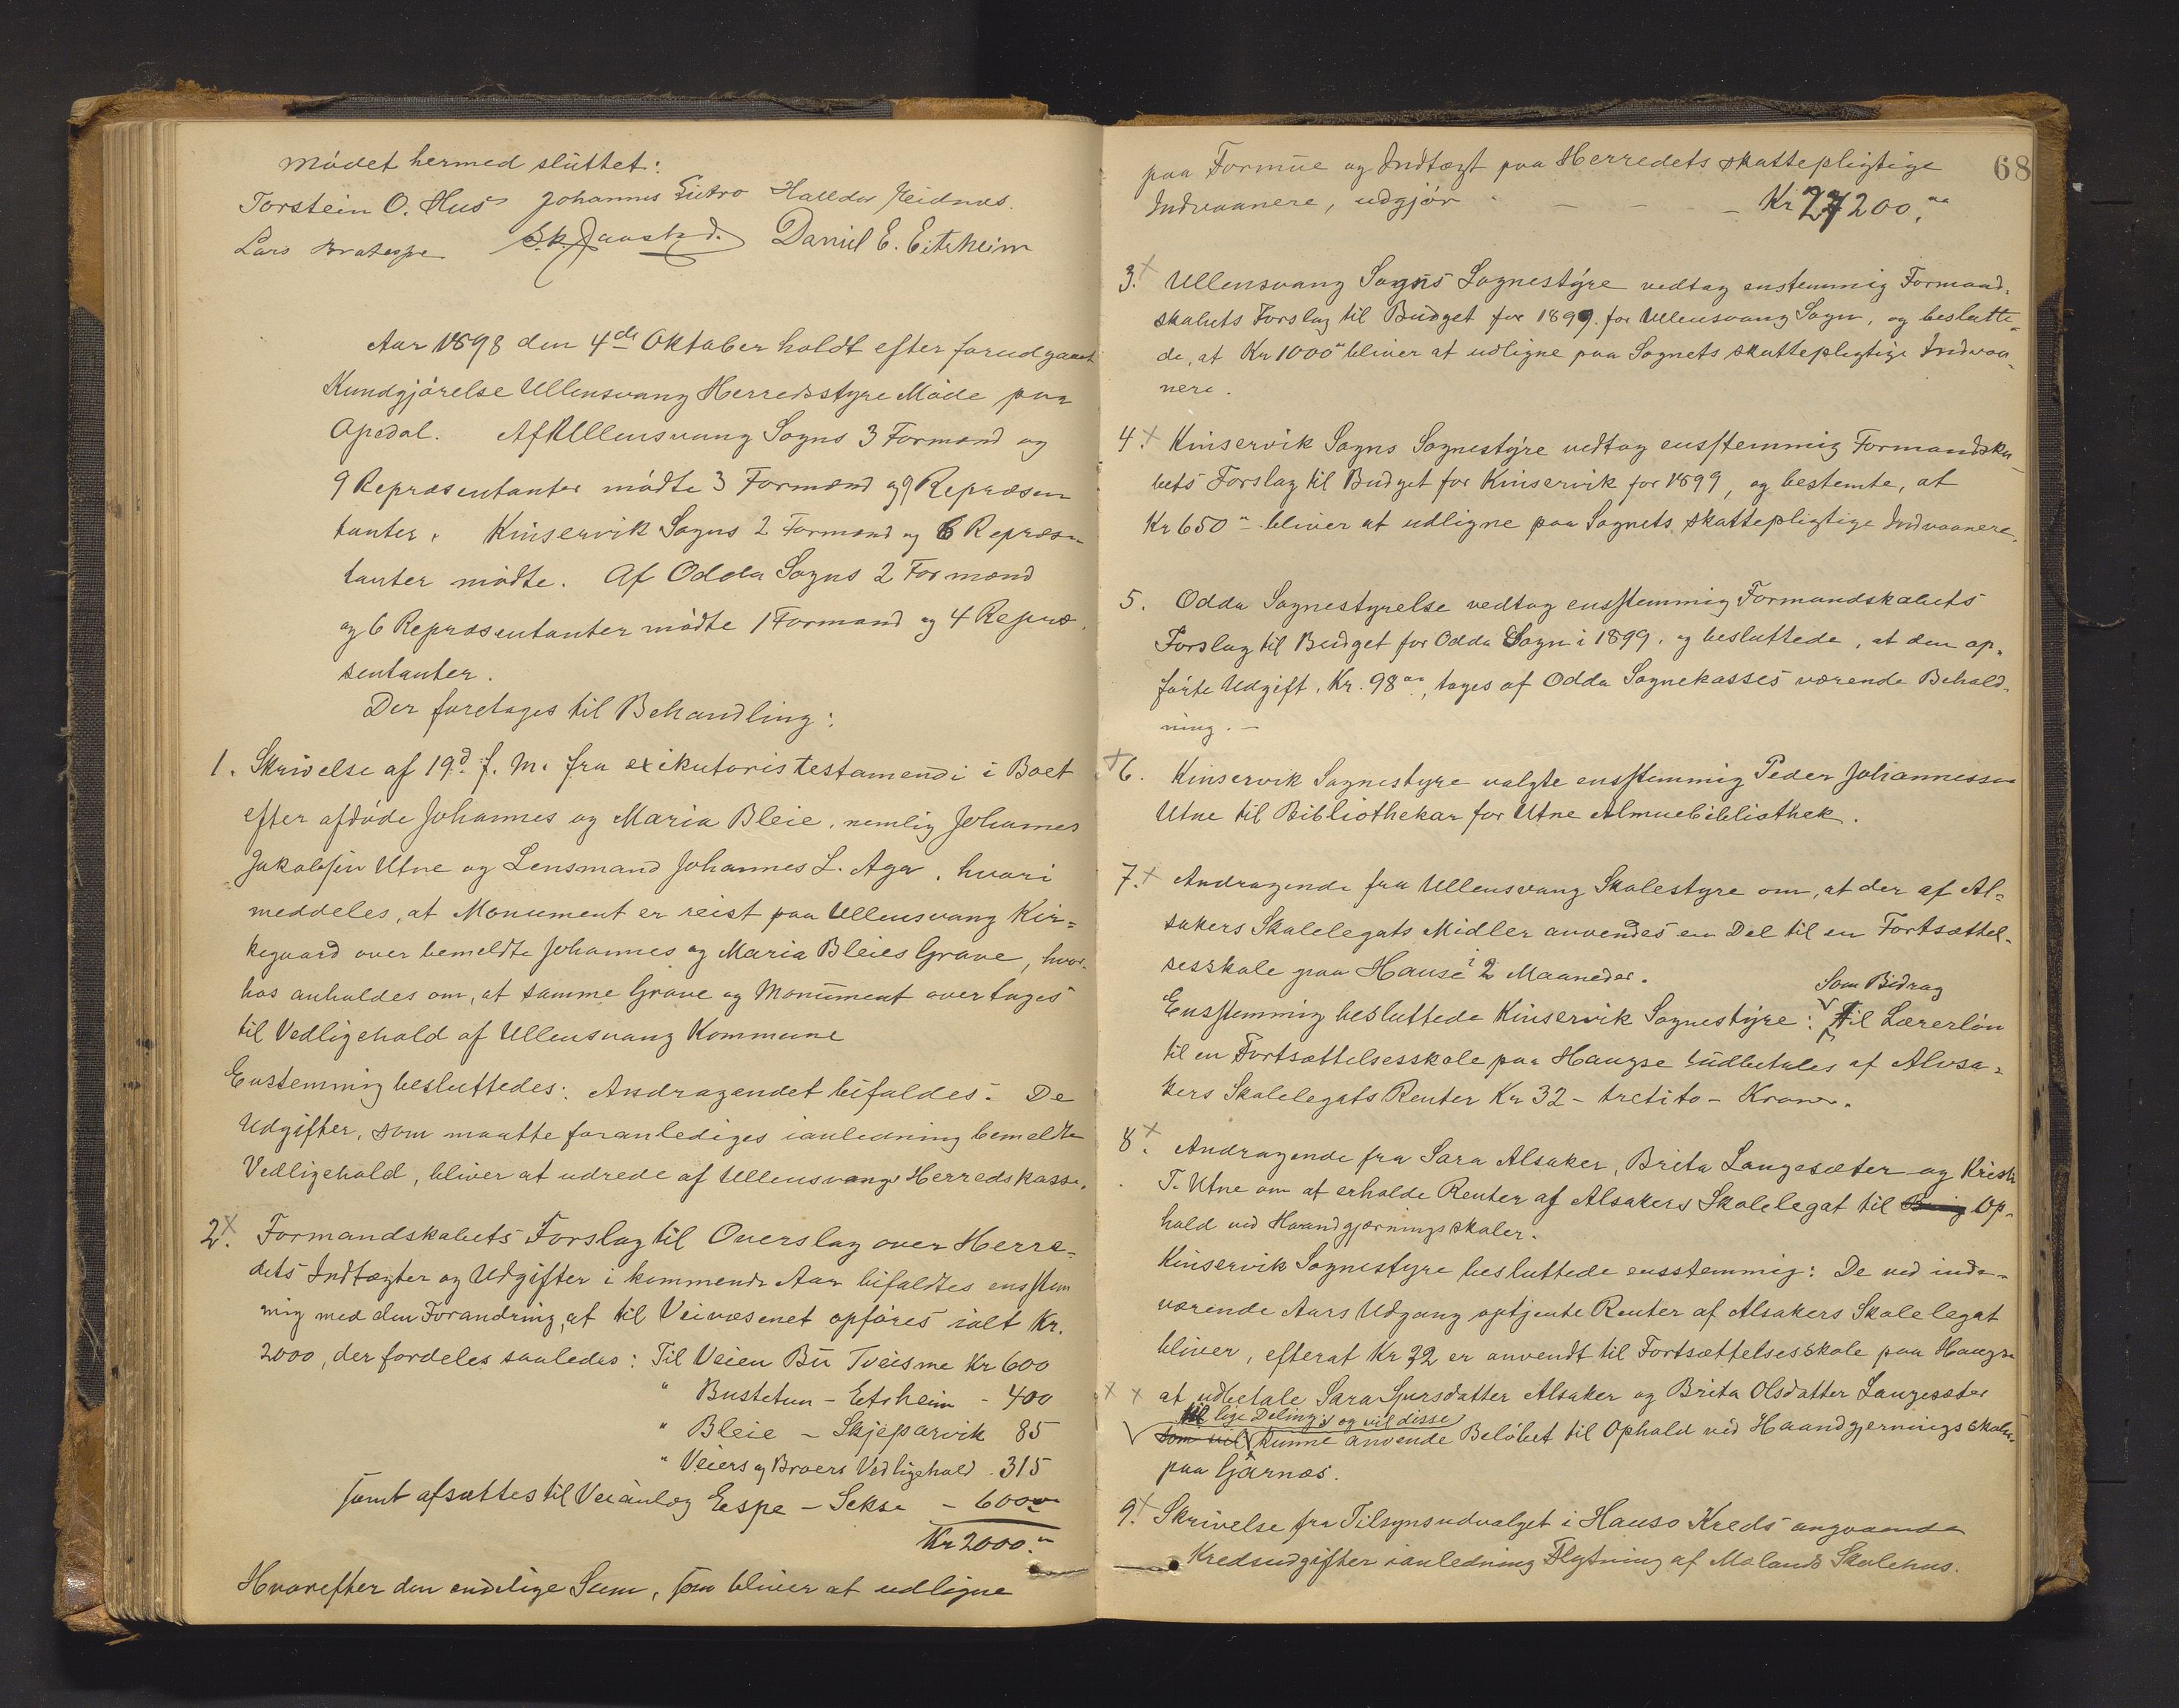 Mödet hermed slüttet:
Torstein O. Hus Johannes Lutro Halldor Reidnæs.
Lars Bratespe S. K. Jaastad. Daniel E. Eitrheim
Aar 1898 den 4de Oktober holdt efter forudgaaet
Kundgjörelse Ullensvang Herredsstyre Möde paa
Apedal. Af Ullensvang Sogns 3 Formænd og
9 Repræsentanter mödte 3 Formænd og 9 Repræsen
tanter. Kinservik Sogns 2 Formænd og 6 Repræsen
tanter mödte. Af Odda Sogns 2 Formænd
og 6 Repræsentanter mödte 1 Formand og 4 Repræ-
sentanter.
Der foretages til Behandling:
1. Skrivelse af 19d. f. M. fra exikutoris testamendi i Boet
efter afdöde Johannes og Maria Bleie, nemlig Johannes
Jakobsen Utne og Lensmand Johannes L. Aga, hvori
meddeles, at Monument er reist paa Ullensvang Kir=
kegaard over bemeldte Johannes og Maria Bleies Grave, hvor-
hos anholdes om, at samme Grave og Monüment overtages
til Vedligehold af Ullensvang Kommune
Enstemmig besluttedes: Andragendet bifaldes. De
Udgifter, som maatte foranlediges ianledning bemeldte
Vedligehold, bliver at udrede af Ullensvang Herredskasse.
2. Formandskabets Forslag til Overslag over Herre-
dets Indtægter og Udgifter i kommende Aar bifaldtes ensstem
mig med den Forandring, at til Veivæsenet opföres ialt Kr.
2000, der fordeles saaledes: Til Veien Bü Tveisme Kr 600
" Bustetun - Eitrheim - 400
" Bleie - Skjeparvik 85
" Veiers og Broers Vedligehold - 315
samt afsættes til Veianlæg Espe - Sekse - 600
Kr 2000.
Hvorefter den endelige Sum, som bliver at udligne
68
paa Formüe og Indtægt paa Herredets skattepligtige
Indvaanere, udgjör - - - Kr 27200,
3. Ullensvang Sogns Sognestyre vedtog enstemmig Formand-
skabets Forslag til Büdget for 1899 for Ullensvang Sogn, og beslutte-
de, at Kr 1000 bliver at udligne paa Sognets skattepligtige Indvaa-
nere.
4. Kinservik Sogns Sognestyre vedtog ensstemmig Formandska-
bets Forslag til Budget for Kinservik for 1899, og bestemte, at
Kr 650 bliver at udligne paa Sognets skattepligtige Indvaanere.
5. Odda Sognestyrelse vedtog ensstemmig Formandskabets
Forslag til Budget for Odda Sogn i 1899, og besluttede, at den op-
förte Udgift, Kr. 98, tages af Odda Sognekasses værende Behold-
ning. -
6. Kinservik Sognestyre valgte ensstemmig Peder Johannessen
Utne til Bibliothekar for Utne Almuebibliothek.
7. Andragende fra Ullensvang Skolestyre om, at der af Al=
sakers Skolelegats Midler anvendes en Del til en Fortsættel-
sesskole paa Hause i 2 Maaneder.
Som Bidrag
Ensstemmig besluttede Kinservik Sognestyre: til Lærerlön
til en Fortsættelsesskole paa Haugse udbetales af Alvsa-
kers Skolelegats Renter Kr 32 - tretito - Kroner.
8. Andragende fra Sara Alsaker, Brita Langesæter og Kristi
T. Utne om at erholde Renter af Alsakers Skolelegat til Op-
hold ved Haandgjerningsskoler.
Kinservik Sognestyre besluttede ensstemmig: De ved inde-
værende Aars Udgang optjente Renter af Alsakers Skolelegat
bliver, efterat Kr 32 er anvendt til Fortsættelsesskole paa Haugse
at udbetale Sara Sjursdatter Alsaker og Brita Olsdatter Langesæter
til lige Deling, og vil disse
som vil kunne anvende Belöbet til Ophold ved Haandgjerningsskolen
paa Gjærnes.
9. Skrivelse fra Tilsynsudvalget i Hauso Kreds angaaende
Kredsudgifter ianledning Flytning af Mælands Skolehus.